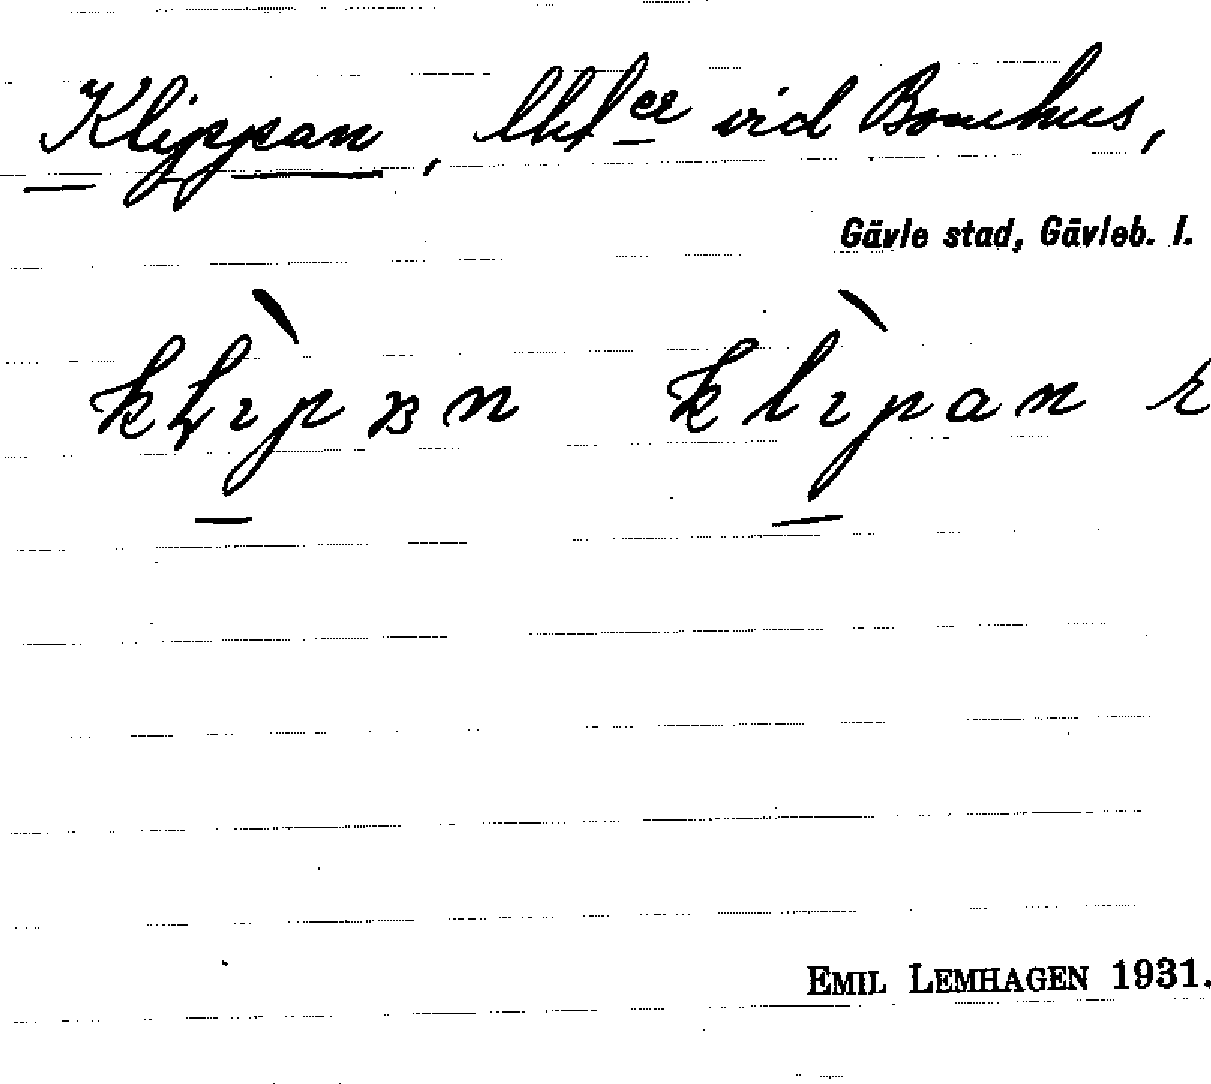 Klippan, lht er vid Bomhus,
Gävle stad, Gävleb. l.
klipan k
EMIL LEMHAGEN 1931.